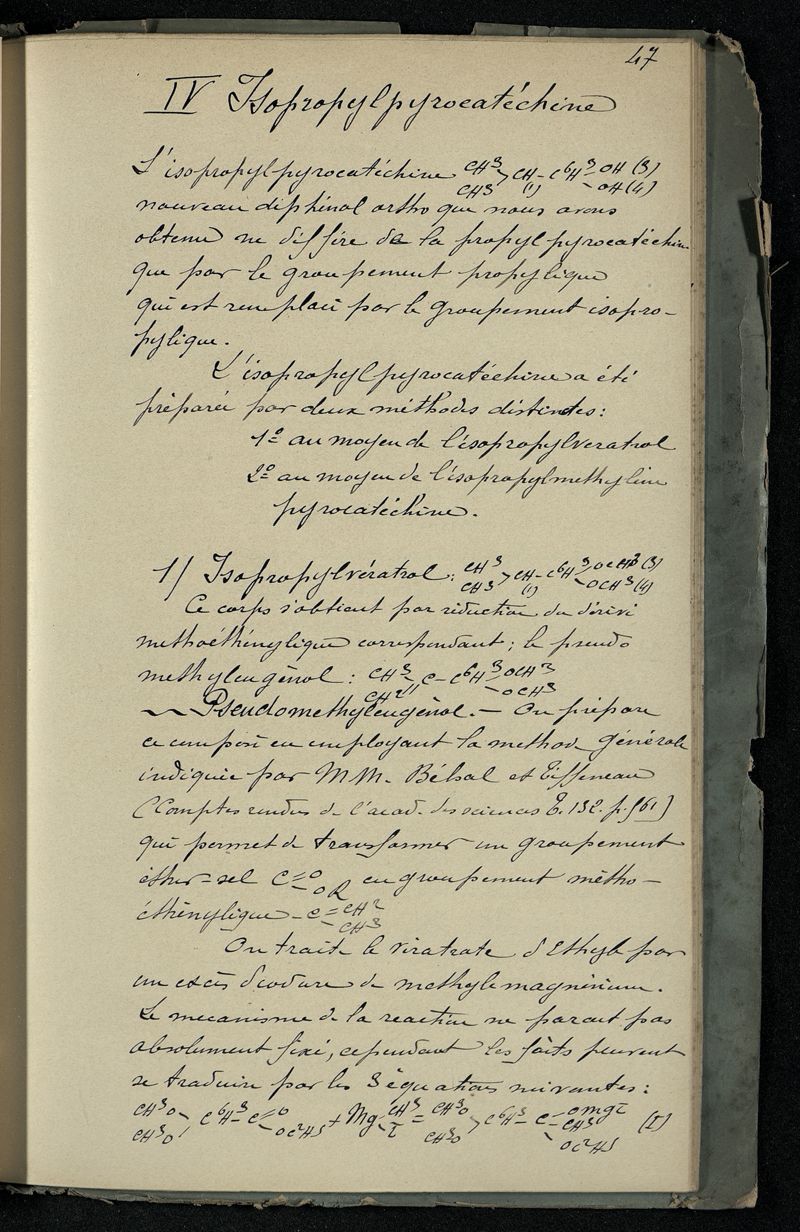 47
IV Isopropylpyrocatéchine
L'isopropylpyrocatéchine CH3 CH3 > CH - C6H3 - OH (3) - OH (4)
(1)
nouveau diphénol ortho que nous avons
obtenu ne diffère de la propylpyrocatéchine
que par le groupement propylique
qui est remplacé par le groupement isopro-
pylique.
L'isopropylpyrocatéchine a été
préparée par deux méthodes distinctes :
1º au moyen de l'isopropylveratrol
2º au moyen de l'isopropylmethylène
pyrocatéchine.
1) Isopropylvératrol : CH3 CH3 > CH - C6H3 - OCH3 (3) - OCH3 (4)
(1)
Ce corps s'obtient par réduction du dérivé
methoéthénylique correspondant ; le pseudo
methyleugénol : CH3 CH2 = C - C6H3 OCH3 - OCH3
Pseudomethyleugénol. — On prépare
ce composé en employant la methode générale
indiquée par MM. Béhal et Tiffeneau
(Comptes rendus de l'acad. des sciences T. 132. p. 561)
qui permet de transformer un groupement
éther-sel C = O - OR en groupement métho-
éthénylique - C = CH2 - CH3
On traite le vératrate d'Ethyle par
un excès d'iodure de methylemagnésium.
Le mecanisme de la reaction ne parait pas
absolument fixé, cependant les faits peuvent
se traduire par les 3 équations suivantes :
CH3O CH3O > C6H3 - C = O - OC2H5 + Mg - CH3 - I = CH3O CH3O > C6H3 - C - OMgI - CH3 - OC2H5 (I)